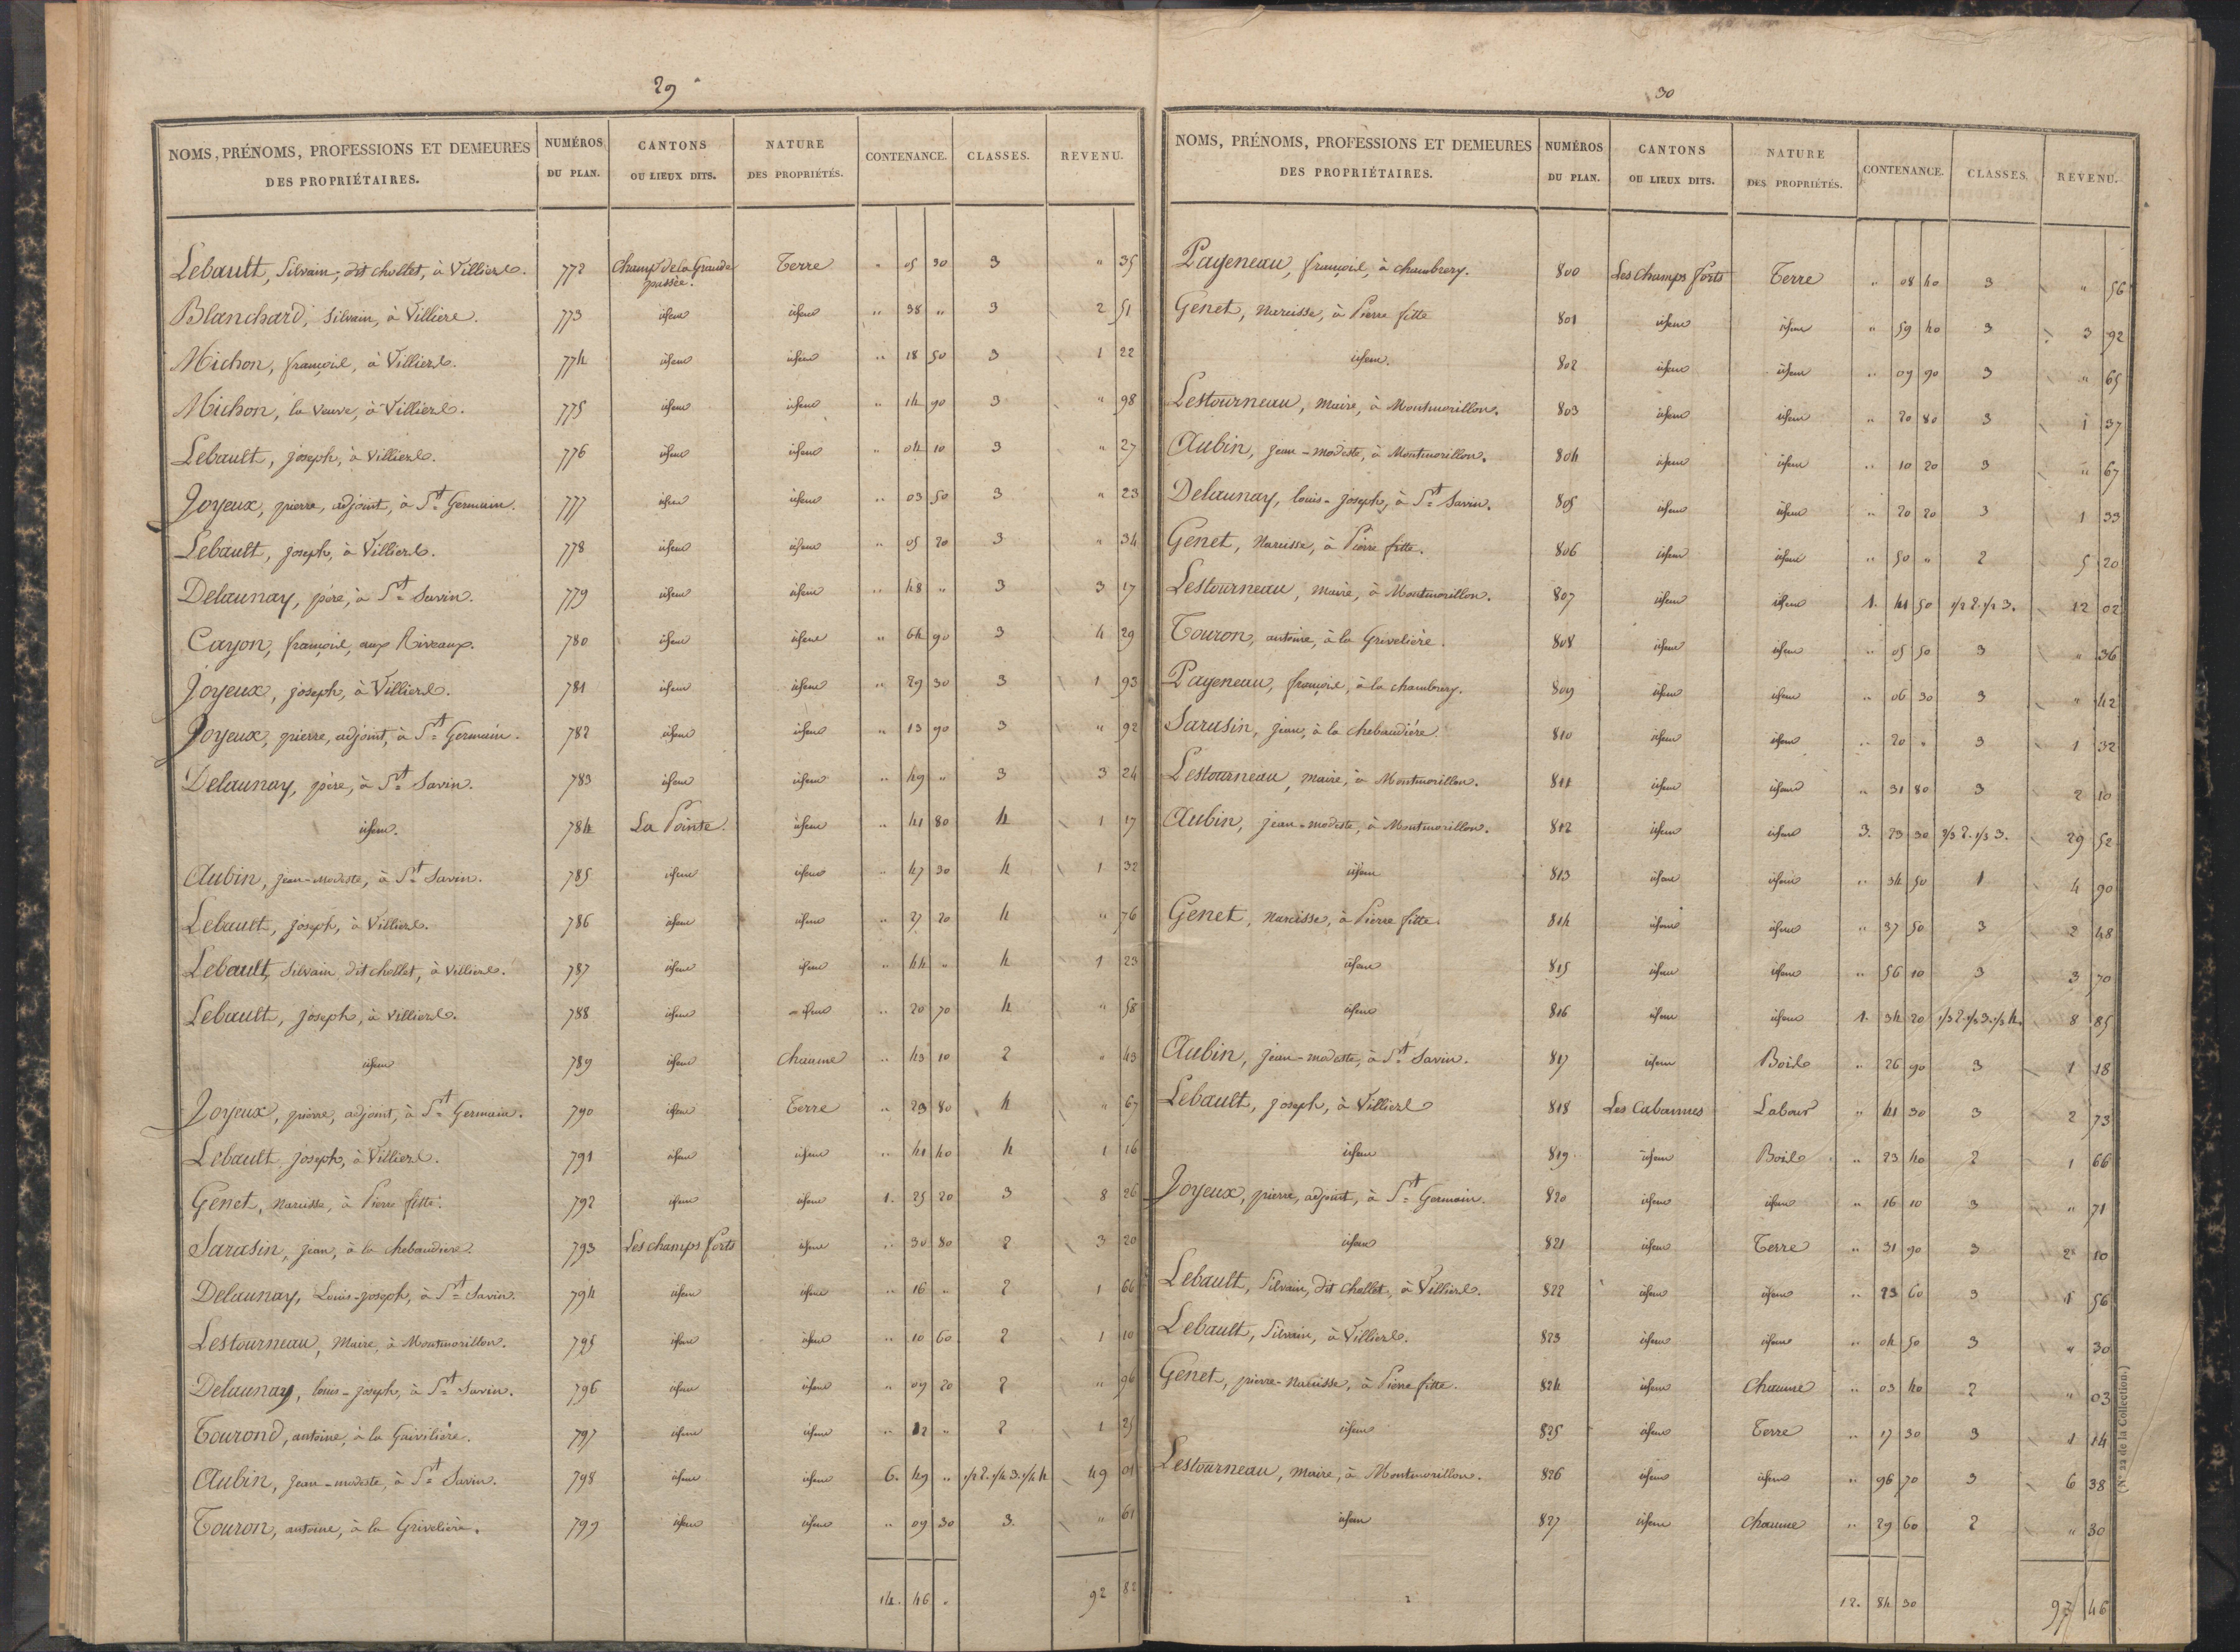 29
NOMS, PRÉNOMS, PROFESSIONS ET DEMEURES DES PROPRIÉTAIRES. NUMÉROS DU PLAN. CANTONS OU LIEUX DITS. NATURE DES PROPRIÉTÉS. CONTENANCE. CLASSES. REVENU.
Lebault, Silvain, dit chollet, à Villiers. 772 Champ de la Grande passée. Terre " 05 30 3 " 35
Blanchard, Silvain, à Villiers. 773 idem idem " 38 " 3 2 51
Michon, françois, à Villiers. 774 idem idem " 18 50 3 1 22
Michon, la veuve, à Villiers. 775 idem idem " 14 90 3 " 98
Lebault, joseph, à Villiers. 776 idem idem " 04 10 3 " 27
Joyeux, pierre, adjoint, à St Germain. 777 idem idem " 03 50 3 " 23
Lebault, joseph, à Villiers. 778 idem idem " 05 20 3 " 34
Delaunay, père, à St Savin. 779 idem idem " 48 " 3 3 17
Cayon, françois, aux Riveaux. 780 idem idem " 64 90 3 4 29
Joyeux, joseph, à Villiers. 781 idem idem " 29 30 3 1 93
Joyeux, pierre, adjoint, à St Germain. 782 idem idem " 13 90 3 " 92
Delaunay, père, à St Savin. 783 idem idem " 49 " 3 3 24
idem. 784 La Pointe. idem " 41 80 4 1 17
Aubin, jean-modeste, à St Savin. 785 idem idem " 47 30 4 1 32
Lebault, joseph, à Villiers. 786 idem idem " 27 20 4 " 76
Lebault, Silvain, dit chollet, à Villiers. 787 idem idem " 44 " 4 1 23
Lebault, joseph, à Villiers. 788 idem idem " 20 70 4 " 58
idem 789 idem Chaume " 43 10 2 " 43
Joyeux, pierre, adjoint, à St Germain. 790 idem Terre " 23 80 4 " 67
Lebault, joseph, à Villiers. 791 idem idem " 41 40 4 1 16
Genet, Narcisse, à Pierre fitte. 792 idem idem 1. 25 20 3 8 26
Sarasin, jean, à la chebaudière. 793 Les champs forts idem " 30 80 2 3 20
Delaunay, Louis-joseph, à St Savin. 794 idem idem " 16 " 2 1 66
Lestourneau, Maire, à Montmorillon. 795 idem idem " 10 60 2 1 10
Delaunay, louis-joseph, à St Savin. 796 idem idem " 09 20 2 " 96
Tourond, antoine, à la Gaivilière. 797 idem idem " 12 " 2 1 25
Aubin, Jean-modeste, à St Savin. 798 idem idem 6. 49 " 1/2 2. 1/4 3. 1/4 4 49 01
Touron, antoine, à la Grivelière. 799 idem idem " 09 30 3. " 61
14. 46 " 92 82
30
NOMS, PRÉNOMS, PROFESSIONS ET DEMEURES DES PROPRIÉTAIRES. NUMÉROS DU PLAN. CANTONS OU LIEUX DITS. NATURE DES PROPRIÉTÉS. CONTENANCE. CLASSES. REVENU.
Pageneau, françois, à chambrery. 800 Les Champs forts Terre " 08 40 3 " 56
Genet, Narcisse, à Pierre fitte 801 idem idem " 59 40 3 3 92
idem. 802 idem idem " 09 90 3 " 65
Lestourneau, maire, à Montmorillon. 803 idem idem " 20 80 3 1 37
Aubin, jean-modeste, à Montmorillon. 804 idem idem " 10 20 3 " 67
Delaunay, louis-joseph, à St Savin. 805 idem idem " 20 20 3 1 33
Genet, Narcisse, à Pierre fitte. 806 idem idem " 50 " 2 5 20
Lestourneau, maire, à Montmorillon. 807 idem idem 1. 41 50 1/2 2. 1/2 3. 12 02
Touron, antoine, à la Grivelière. 808 idem idem " 05 50 3 " 36
Pageneau, françois, à la chambrery. 809 idem idem " 06 30 3 " 42
Sarasin, jean, à la chebaudière. 810 idem idem " 20 " 3 1 32
Lestourneau, maire, à Montmorillon. 811 idem idem " 31 80 3 2 10
Aubin, jean-modeste, à Montmorillon. 812 idem idem 3. 23 30 2/3 2. 1/3 3. 29 52
idem 813 idem idem " 34 50 1 4 90
Genet, narcisse, à Pierre fitte. 814 idem idem " 37 50 3 2 48
idem 815 idem idem " 56 10 3 3 70
idem 816 idem idem 1. 34 20 1/3 2. 1/3 3. 1/3 4. 8 85
Aubin, jean-modeste, à St Savin. 817 idem Bois " 26 90 3 1 18
Lebault, joseph, à Villiers 818 Les Cabannes Labour " 41 30 3 2 73
idem 819 idem Bois " 23 40 2 1 66
Joyeux, pierre, adjoint, à St Germain. 820 idem idem " 16 10 3 " 71
idem 821 idem Terre " 31 90 3 2 10
Lebault, Silvain, dit chollet, à Villiers. 822 idem idem " 23 60 3 1 56
Lebault, Silvain, à Villiers. 823 idem idem " 04 50 3 " 30
Genet, pierre-narcisse, à Pierre fitte. 824 idem Chaume " 03 40 2 " 03
idem 825 idem Terre " 17 30 3 1 14
Lestourneau, maire, à Montmorillon. 826 idem idem " 96 70 3 6 38
idem 827 idem Chaume " 29 60 2 " 30
12. 84 30 97 46
(N° 22 de la Collection.)